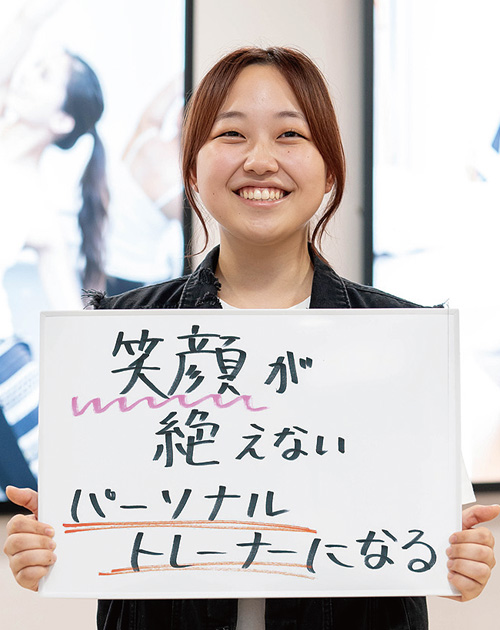 笑顔が
絶えない
パーソナル
トレーナーになる